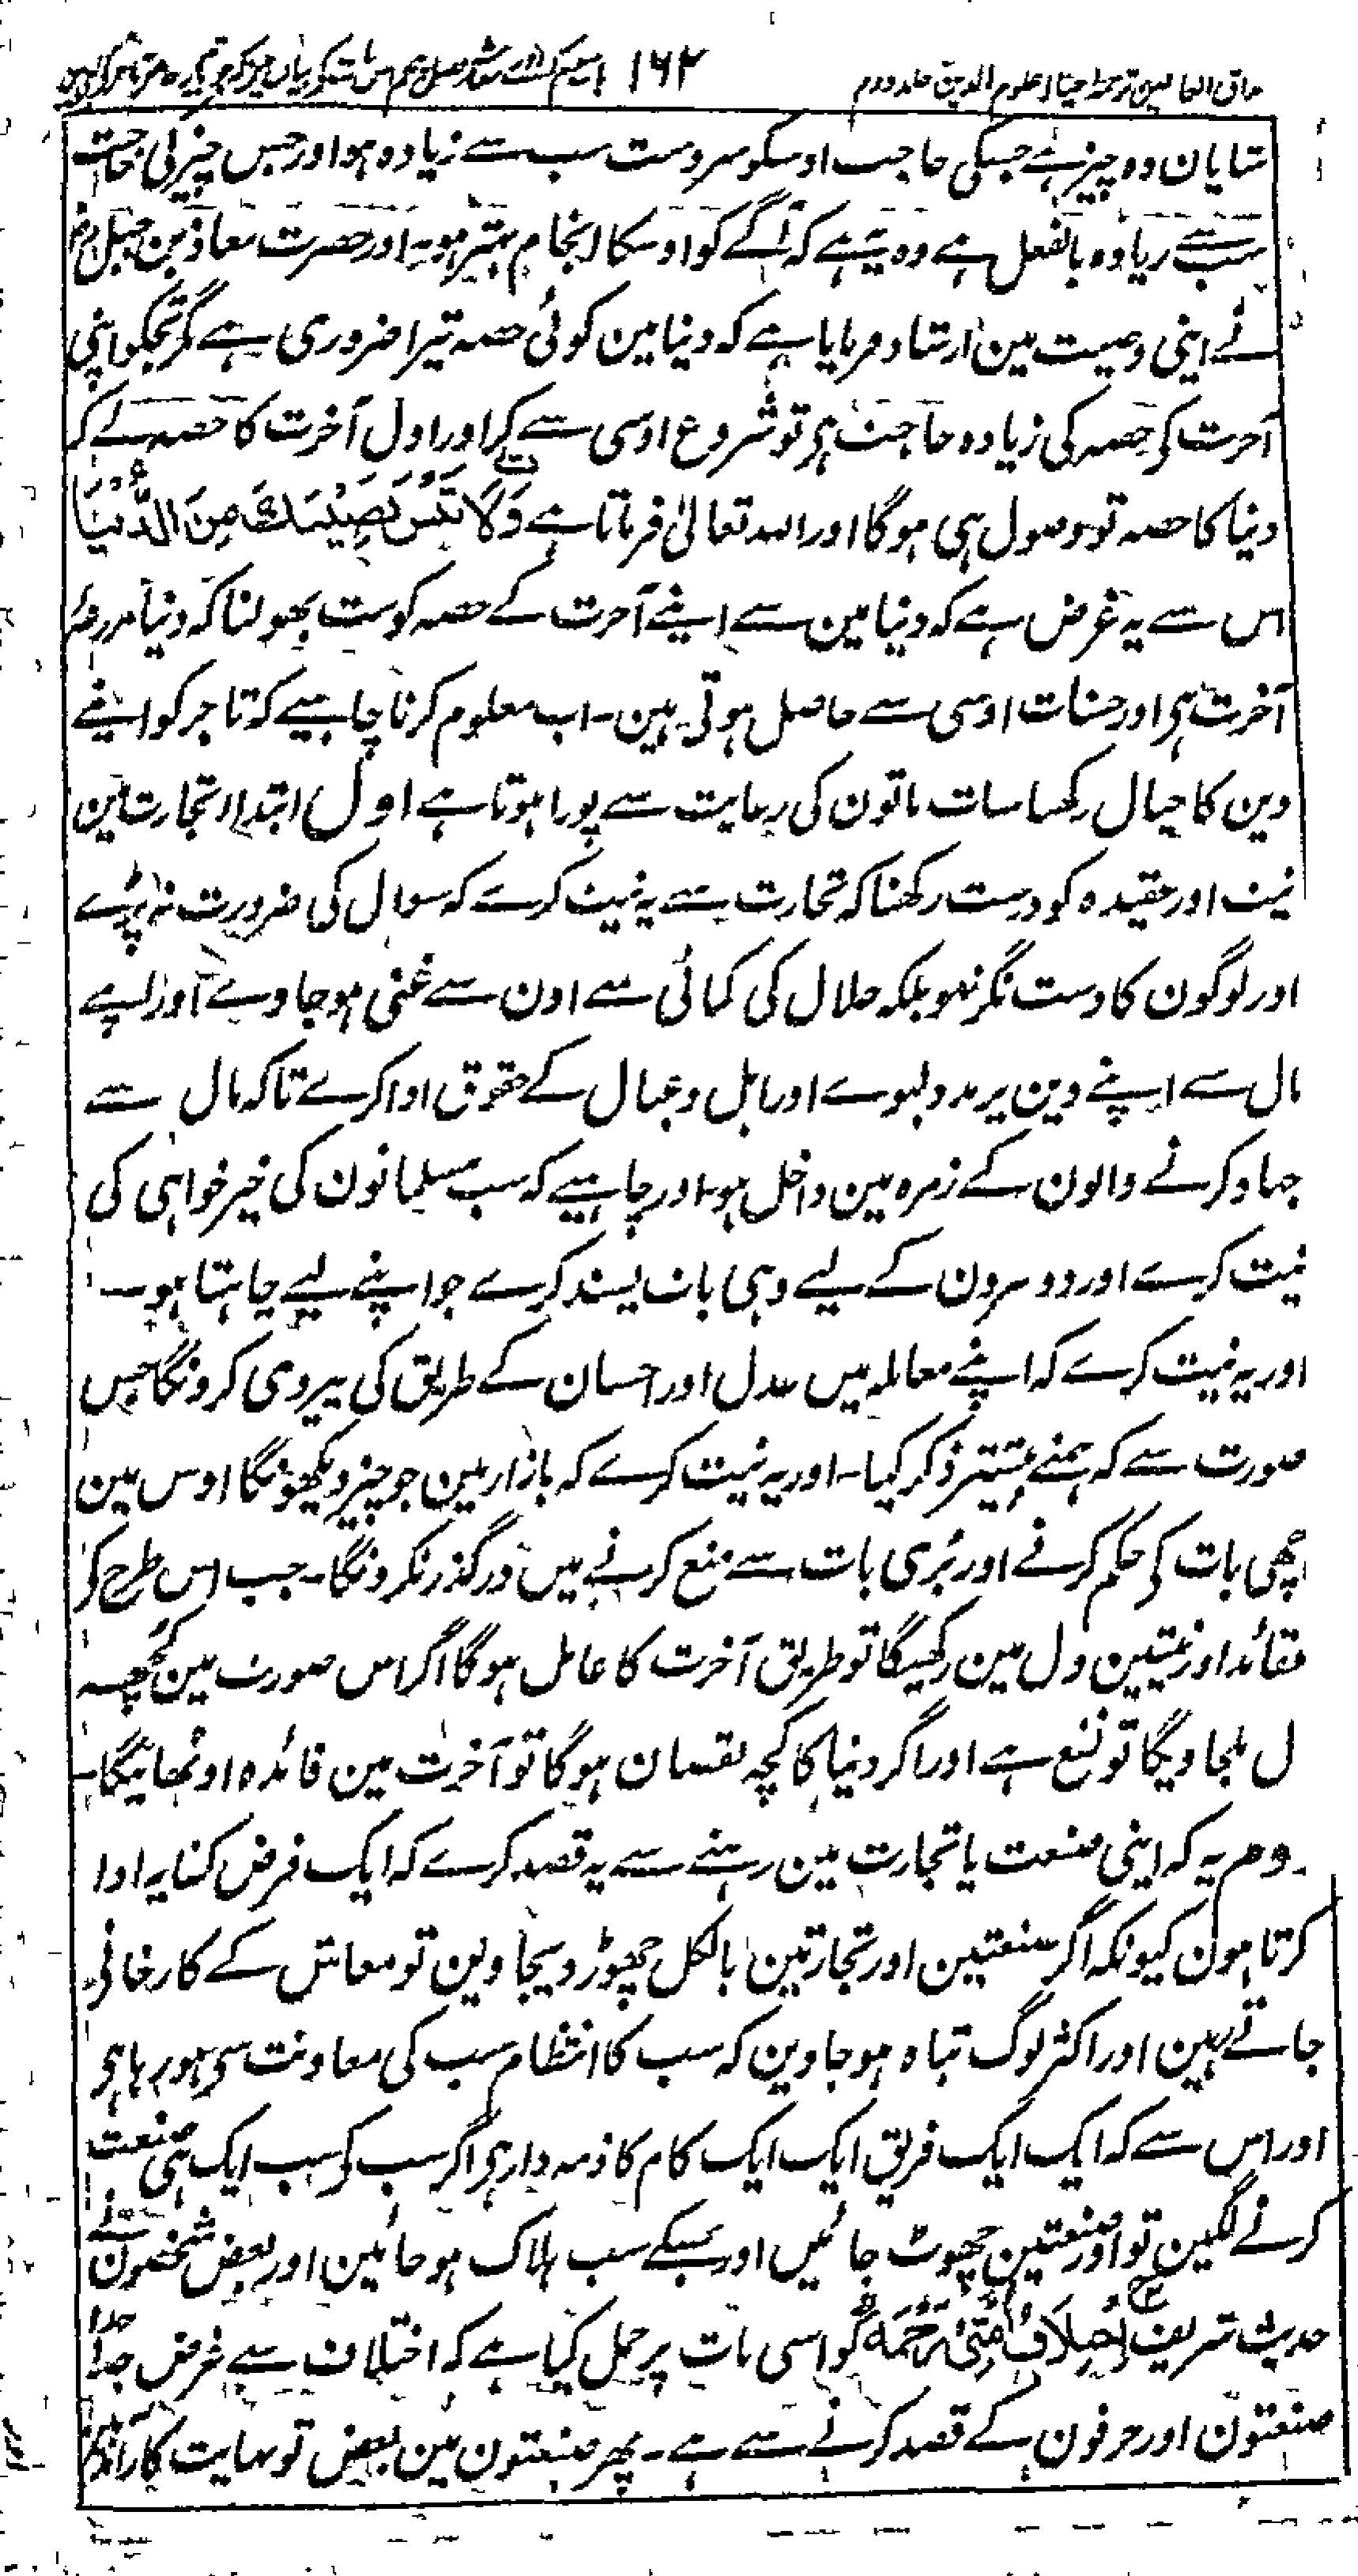 مذاق العارفین ترجمہ احیاء علوم الدین جلد دوم ۱۶۲
شایان وہ چیز ہے جسکی حاجت اوسکو سردست سب سے زیادہ ہو اور جس چیز کی حاجت
سب سے زیادہ بالفعل ہے وہ یہ ہے کہ آگے کو اوسکا انجام بہتر ہو۔ اور حضرت معاذ بن جبل رض
نے اپنی وصیت مین ارشاد فرمایا ہے کہ دنیا مین کوئی حصہ تیرا ضروری ہے مگر تجکو اپنی
آخرت کی حصہ کی زیادہ حاجت ہی تو شروع اوسی سے کر اور اول آخرت کا حصہ لے کہ
دنیا کا حصہ تو وصول ہی ہوگا اور اللہ تعالیٰ فرماتا ہے وَلَا تَنْسَ نَصِيْبَكَ مِنَ الدُّنْيَا
اس سے یہ غرض ہے کہ دنیا مین سے اپنے آخرت کے حصہ کو مت بھولنا کہ دنیا مزرعہ
آخرت ہی اور حسنات اوسی سے حاصل ہوتی ہین۔ اب معلوم کرنا چاہیے کہ تاجر کو اپنے
دین کا خیال رکھنا سات باتون کی رعایت سے پورا ہوتا ہے اول ابتداء تجارت مین
نیت اور عقیدہ کو درست رکھنا کہ تجارت سے یہ نیت کرے کہ سوال کی ضرورت نہ پڑے
اور لوگون کا دست نگر نہو بلکہ حلال کی کمائی سے اون سے غنی ہو جاوے اور اپنے
مال سے اپنے دین پر مدد لیوے اور اہل و عیال کے حقوق ادا کرے تاکہ مال سے
جہاد کرنے والون کے زمرہ مین داخل ہو۔ اور چاہیے کہ سب مسلمانون کی خیرخواہی کی
نیت کرے اور دوسرون کے لیے وہی بات پسند کرے جو اپنے لیے چاہتا ہو۔
اور یہ نیت کرے کہ اپنے معاملہ میں عدل اور احسان کے طریق کی پیروی کرونگا جس
صورت سے کہ ہمنے پیشتر ذکر کیا۔ اور یہ نیت کرے کہ بازار مین جو چیز دیکھونگا اوس مین
اچھی بات کی حکم کرنے اور بُری بات سے منع کرنے میں درگذر نکرونگا۔ جب اس طرح کر
عقائد اور نیتین دل مین رکھیگا تو طریق آخرت کا عامل ہوگا اگر اس صورت مین کچھ
مل جاویگا تو نفع ہے اور اگر دنیا کا کچھ نقصان ہوگا تو آخرت مین فائدہ اوٹھائیگا۔
دوم یہ کہ اپنی صنعت یا تجارت مین رہنے سے یہ قصد کرے کہ ایک فرض کفایہ ادا
کرتا ہون کیونکہ اگر صنعتین اور تجارتین بالکل چھوڑ دیجاوین تو معاش کے کارخانے
جاتے رہین اور اکثر لوگ تباہ ہو جاوین کہ سب کا انتظام سب کی معاونت سی ہو رہا ہی
اور اس سے کہ ایک ایک فریق ایک ایک کام کا ذمہ دار ہی اگر سب کی سب ایک ہی صنعت
کرنے لگین تو اور صنعتین چھوٹ جائیں اور سبکے سب ہلاک ہو جائین اور بعض شخصون نے
حدیث شریف اِخْتِلَافُ اُمَّتِیْ رَحْمَةٌ کو اسی بات پر حمل کیا ہے کہ اختلاف سے غرض جدا جدا
صنعتون اور حرفون کے قصد کرنے سے ہے۔ پھر صنعتون مین بعض تو نہایت کارآمد ہین